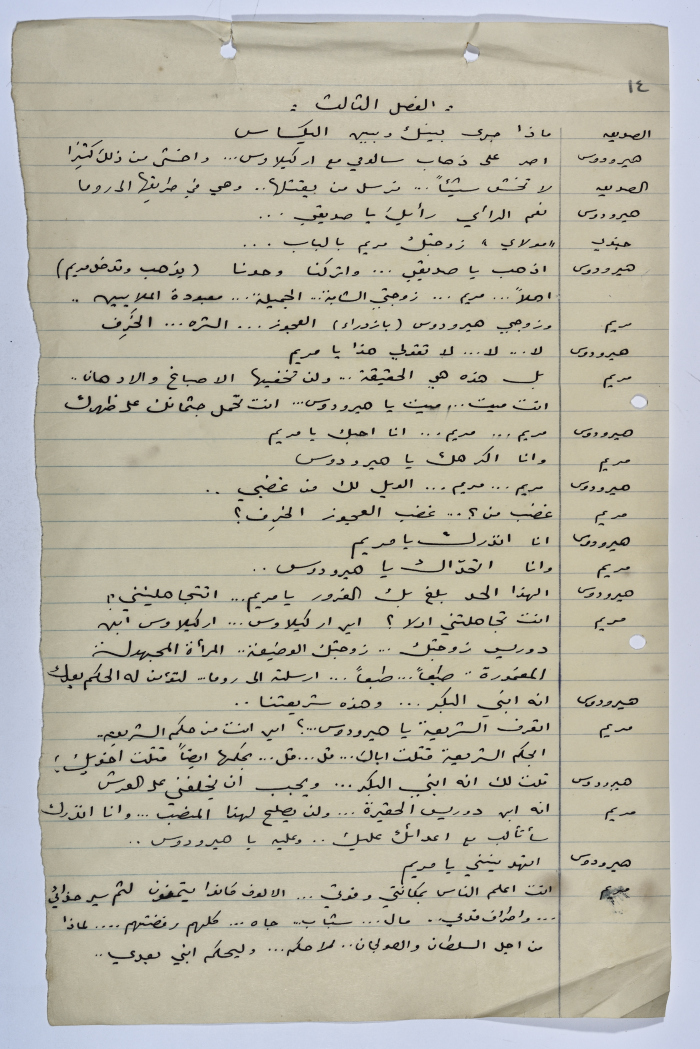 ١٤
: الفصل الثالث :
الصديق ماذا جرى بينك وبين اليكساس
هيرودوس اصر على ذهاب سالومي مع اركيلاوس... واخشى من ذلك كثيرًا
الصديق لا تخش شيئاً... نرسل من يقتلها.. وهي في طريقها الى روما
هيرودوس نعم الرأي رأيك يا صديقي ...
جندي "مولاي" زوجتك مريم بالباب ...
هيرودوس اذهب يا صديقي ... واتركنا وحدنا (يذهب وتدخل مريم)
اهلاً... مريم ... زوجتي الشابة.. الجميلة... معبودة الملايين ..
مريم وزوجي هيرودوس (بازدراء) العجوز... الشره... الخَرِف
هيرودوس لا... لا... لا تقولي هذا يا مريم
مريم بل هذه هي الحقيقة... ولن تخفيها الاصباغ والادهان..
انت ميت... ميت يا هيرودوس... انت تحمل جثمانك على ظهرك
هيرودوس مريم... مريم... انا احبك يا مريم
مريم وانا اكرهك يا هيرودوس
هيرودوس مريم... مريم... الويل لك من غضبي ..
مريم غضب من؟... غضب العجوز الخَرِف؟
هيرودوس انا انذرك يا مريم
مريم وانا اتحدّاك يا هيرودوس ..
هيرودوس الهذا الحد بلغ بك الغرور يا مريم... اتتجاهلينني؟!
مريم انت تجاهلتني اولا؟ اين اركيلاوس... اركيلاوس ابن
دوريس زوجتك... زوجتك الوضيعة.. المرأة المجهولة
المغمورة.. طبعاً... طبعاً... ارسلته الى روما.. لتؤمن له الحكم بعدك
هيرودوس انه ابني البكر... وهذه شريعتنا..
مريم اتعرف الشريعة يا هيرودوس...؟ اين انت من حكم الشريعة..
ابحكم الشريعة قتلت اباك... قل... قل... بحكمها ايضاً قتلت اخويك؟
هيرودوس قلت لك انه ابني البكر... ويجب ان يخلفني على العرش
مريم انه ابن دوريس الحقيرة... ولن يصلح لهذا المنصب... وانا انذرك
سأتألب مع اعدائك عليك .. وعليه يا هيرودوس ..
هيرودوس اتهددينني يا مريم
مريم انت اعلم الناس بمكانتي وقوتي... الالوف كانوا يتمنون لثم سير حذائي
... واطراف قدمي.. مال... شباب.. جاه... كلهم رفضتهم.... لماذا
من اجل السلطان والصولجان.. لاحكم... وليحكم ابني بعدي..